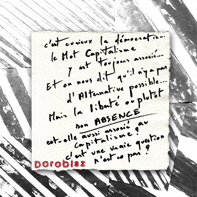 c'est curieux la démocratie.
le Mot Capitalisme
y est toujours associé...
Et on nous dit qu'il n'y a pas
d'Alternative possible...
Mais la liberté ou plutôt
son ABSENCE
est-elle aussi associé au
Capitalisme ?
c'est une vraie question
n'est ce pas ?
Doroblez